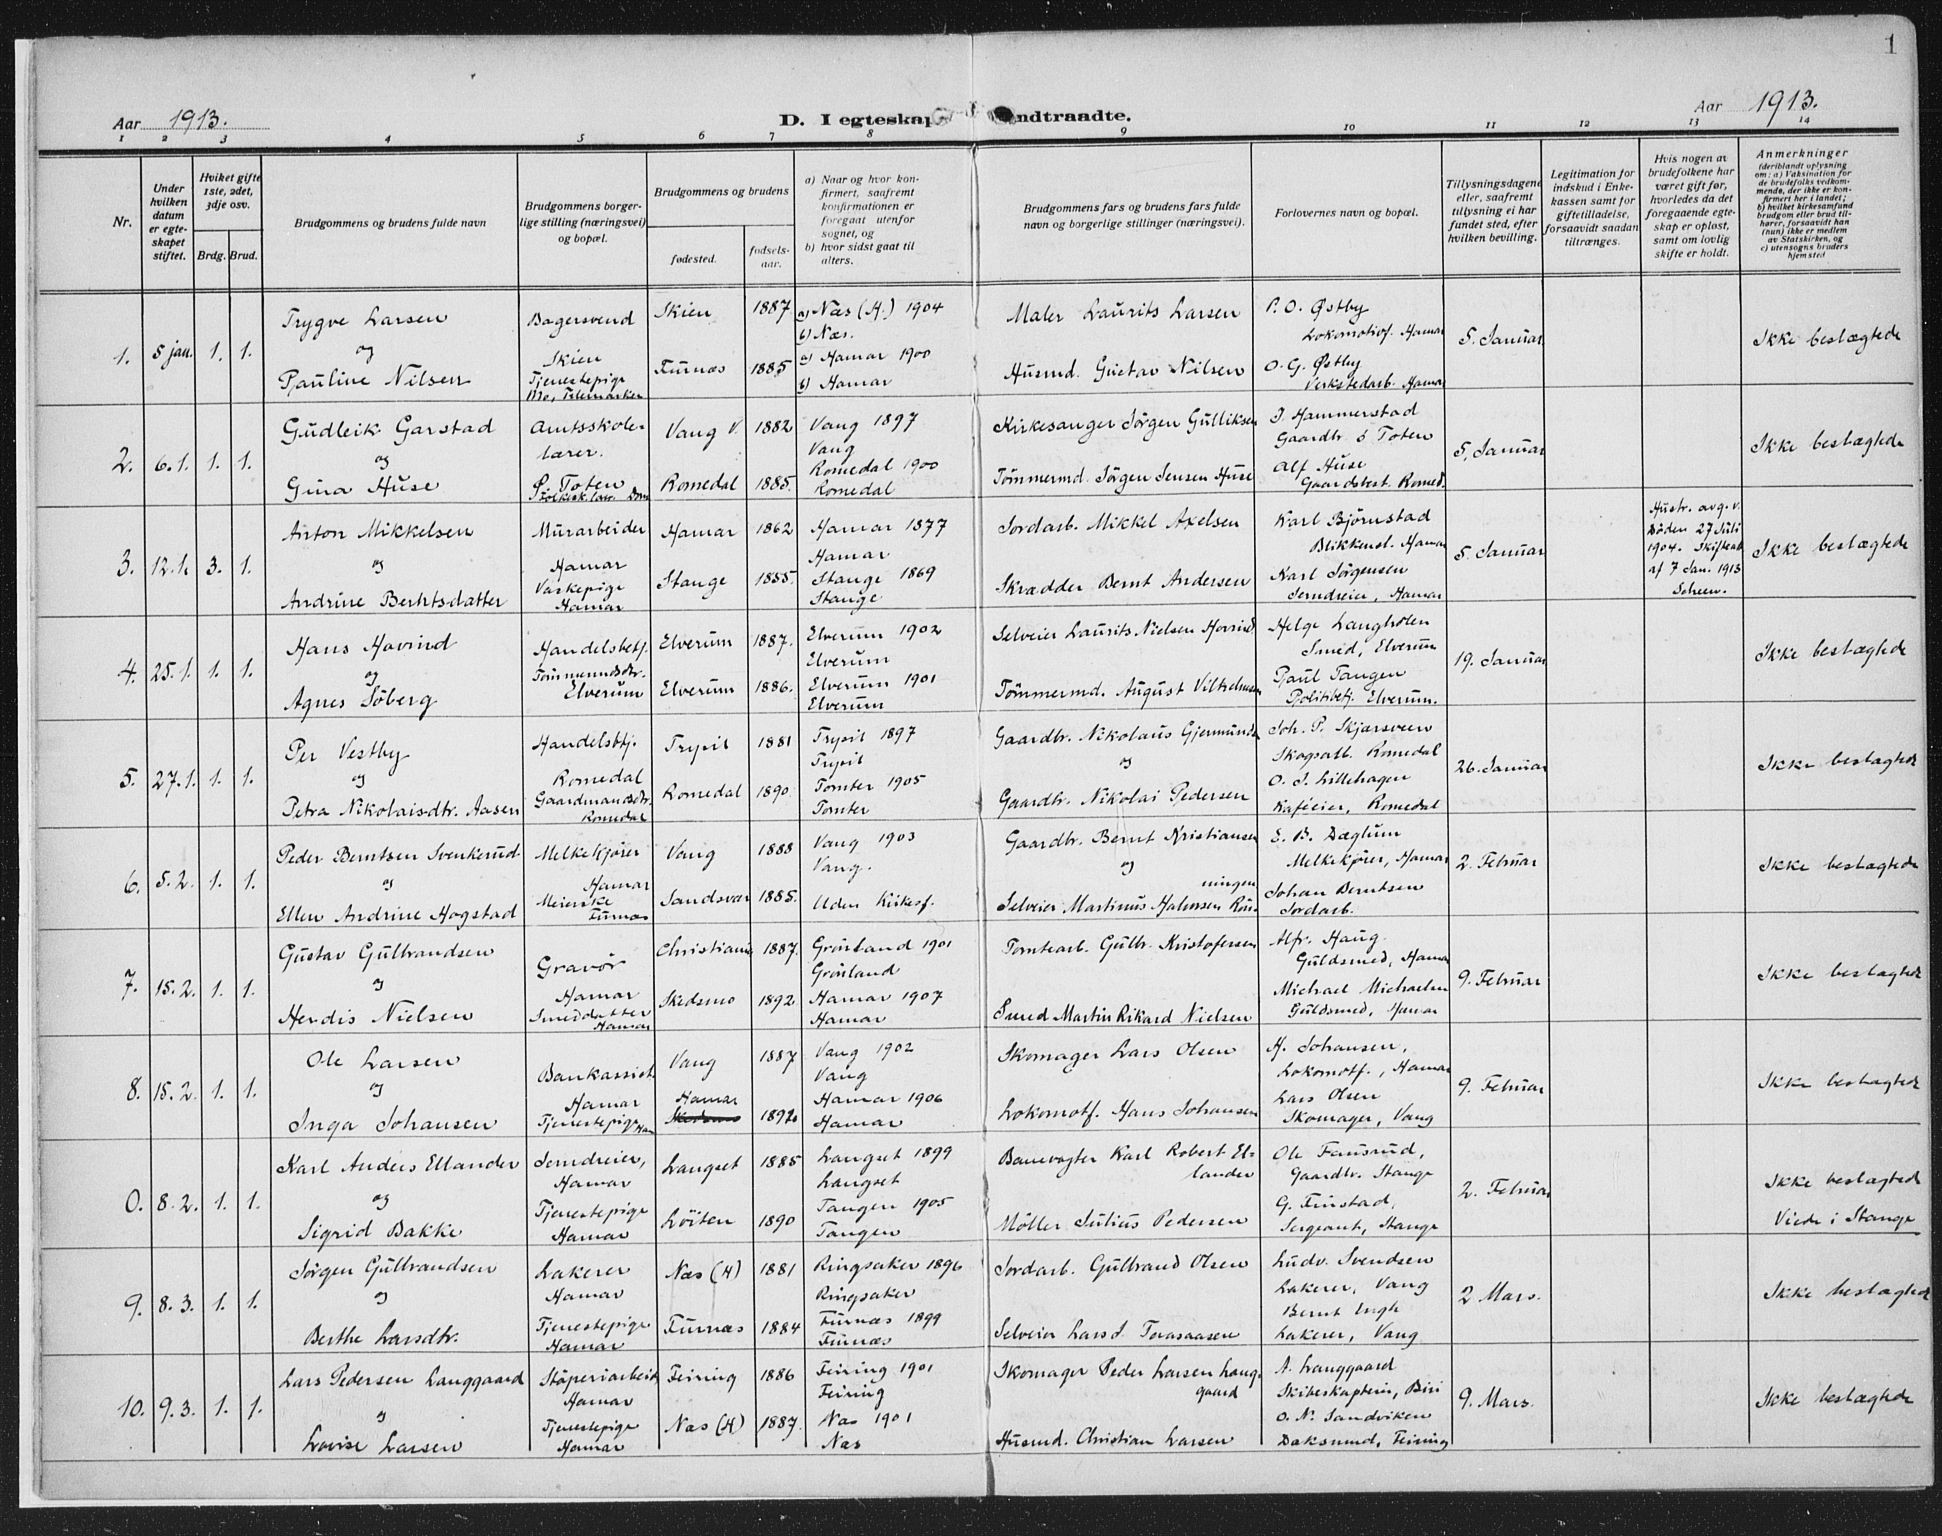 1
Aar 1913.
D. I egteskap
ndtraadte.
Aar 1913.
1 2 3 4 5 6 7 8 9 10 11 12 13 14
Nr.
Under hvilken datum er egteskapet stiftet.
Hviket gifte 1ste, 2det, 3dje osv.
Brdg. Brud.
Brudgommens og brudens fulde navn
Brudgommens borgerlige stilling (næringsvei) og bopæl.
Brudgommens og brudens
fødested.
fødselsaar.
a) Naar og hvor konfirmert, saafremt konfirmationen er foregaat utenfor sognet, og
b) hvor sidst gaat til alters.
Brudgommens fars og brudens fars fulde navn og borgerlige stillinger (næringsvei).
Forlovernes navn og bopæl.
Tillysningsdagene eller, saafremt tillysning ei har fundet sted, efter hvilken bevilling.
Legitimation for indskud i Enkekassen samt for giftetilladelse, forsaavidt saadan tiltrænges.
Hvis nogen av brudefolkene har været gift før, hvorledes da det foregaaende egteskap er opløst, samt om lovlig skifte er holdt.
Anmerkninger
(deriblandt oplysning om: a) Vaksination for de brudefolks vedkommende, der ikke er konfirmert her i landet;
b) hvilket kirkesamfund brudgom eller brud tilhører, forsaavidt han (hun) ikke er medlem av Statskirken, og
c) utensogns bruders hjemsted
1. 5 jan. 1. 1.
Trygve Larsen
og
Pauline Nilsen
Bagersvend
Skien
Tjenestepige
Mo, Telemarken
Skien 1887
Furnæs 1885
a) Næs (H.) 1904
b) Næs.
a) Hamar 1900
b) Hamar
Maler Laurits Larsen
Husmd. Gustav Nilsen
P. O. Østby
Lokomotivf. Hamar
O. G. Østby
Verkstedarb. Hamar
5. Januar
Ikke beslægtede
2. 6.1. 1. 1.
Gudleik Garstad
og
Gina Huse
Amtsskole-
lærer.
Ø. Toten
Vang V. 1882
Romedal 1885.
Vang 1897
Vang
Romedal 1900
Romedal
Kirkesanger Jörgen Gulliksen
Tömmermd. Jörgen Jensen Huse
J. Hammerstad
Gaardbr. ö Toten
Alf Huse
Gaardsbest. Romed.
5. Januar
Ikke beslægtede
3. 12.1. 3. 1.
Anton Mikkelsen
og
Andrine Berntsdatter
Murarbeider
Hamar
Vaskepige
Hamar
Hamar 1862
Stange 1855.
Hamar 1877
Hamar
Stange 1869
Stange
Jordarb. Mikkel Axelsen
Skrædder Bernt Andersen
Karl Bjørnstad
Blikkensl. Hamar
Karl Jörgensen
Jerndreier, Hamar
5. Januar
Hustr. avg. v.
Døden 27 Juli
1904. Skifteatt
af 7 Jan. 1913
Ikke beslægtede
4. 25.1. 1. 1.
Hans Hovind
og
Agnes Söberg
Handelsbetj.
Tömmermdsdtr.
Elverum
Elverum 1887.
Elverum 1886.
Elverum 1902
Elverum
Elverum 1901
Elverum
Selveier Laurits Nielsen Hovind
Tömmermd. August Vilhelmsen
Helge Langholen
Smed, Elverum
Paul Tangen
Politibetj. Elverum.
19. Januar
Ikke beslægtede
5. 27.1. 1. 1.
Per Vestby
og
Petra Nikolaisdtr. Aasen
Handelsbtj.
Romedal
Gaardmandsdtr.
Romedal
Trysil 1881
Romedal 1890.
Trysil 1897
Trysil
Tomter 1905
Tomter
Gaardbr. Nikolaus Gjermunds
og
Gaardbr. Nikolai Pedersen
Joh. P. Skjærsveen
Skogsatt. Romedal
O. J. Lillehagen
Kaféeier, Romedal
26. Januar
Ikke beslægtede
6. 5.2. 1. 1.
Peder Berntsen Svenkerud
og
Ellen Andrine Hogstad
Melkekjører
Hamar
Meierske
Furnæs
Vang 1888
Sandsvær 1885.
Vang 1903
Vang.
Uden Kirkesf.
Gaardbr. Bernt Kristiansen
og
Selveier Martinus Halvorsen Röu-
ningen
E. B. Dæglum
Melkekjører, Hamar
Johan Berntsen
Jordarb.
2. Februar
Ikke beslægtede
7. 15.2. 1. 1.
Gustav Gulbrandsen
og
Herdis Nielsen
Gravör
Hamar
Smeddatter
Hamar
Christiania 1887.
Skedsmo 1892
Grönland 1901
Grönland
Hamar 1907
Hamar
Tomtearb. Gulbr. Kristofersen
Smed Martin Rikard Nielsen
Alfr. Haug.
Guldsmed, Hamar
Michael Michaelsen
Guldsmed, Hamar
9. Februar
Ikke beslægtede
8. 15.2. 1. 1.
Ole Larsen
og
Inga Johansen
Bankassist.
Hamar
Tjenestepige Ham
Vang 1887
Hamar
Skedsmo 1892
Vang 1902
Vang
Hamar 1906
Hamar
Skomager Lars Olsen
Lokomotf. Hans Johansen
H. Johansen,
Lokomotf., Hamar
Lars Olsen
Skomager, Vang
9. Februar
Ikke beslægtede
0. 8.2. 1. 1.
Karl Anders Ellander
og
Sigrid Bakke
Jerndreier,
Hamar
Tjenestepige
Hamar
Langset 1885
Löiten 1890
Langset 1899
Langset
Tangen 1905
Tangen
Banevogter Karl Robert El-
lander
Möller Julius Pedersen
Ole Fausrud,
Gaardbr. Stange
G. Finstad,
Sergeant, Stange
2. Februar
Ikke beslægtede
Viede i Stange
9. 8.3. 1. 1.
Jörgen Gulbrandsen
og
Berthe Larsdtr.
Lakerer
Hamar
Tjenestepige
Hamar
Næs (H) 1881
Furnæs 1884
Ringsaker 1896
Ringsaker
Furnæs 1899
Furnæs
Jordarb. Gulbrand Olsen
Selveier Lars J. Torasaasen
Ludv. Svendsen
Lakerer, Vang
Bernt Engh
Lakerer, Vang
2 Mars.
Ikke beslægtede
10. 9.3. 1. 1.
Lars Pedersen Langgaard
og
Lovise Larsen
Støperiarbeid
Hamar
Tjenestepige
Hamar
Feiring 1886
Næs (H) 1887.
Feiring 1901
Feiring
Næs 1901
Næs
Skomager Peder Larsen Lang-
gaard
Husmd. Christian Larsen
A. Langgaard
Skibeskaptein, Biri
O. N. Sandviken
Baksmd, Feiring
9. Mars.
Ikke beslægtede